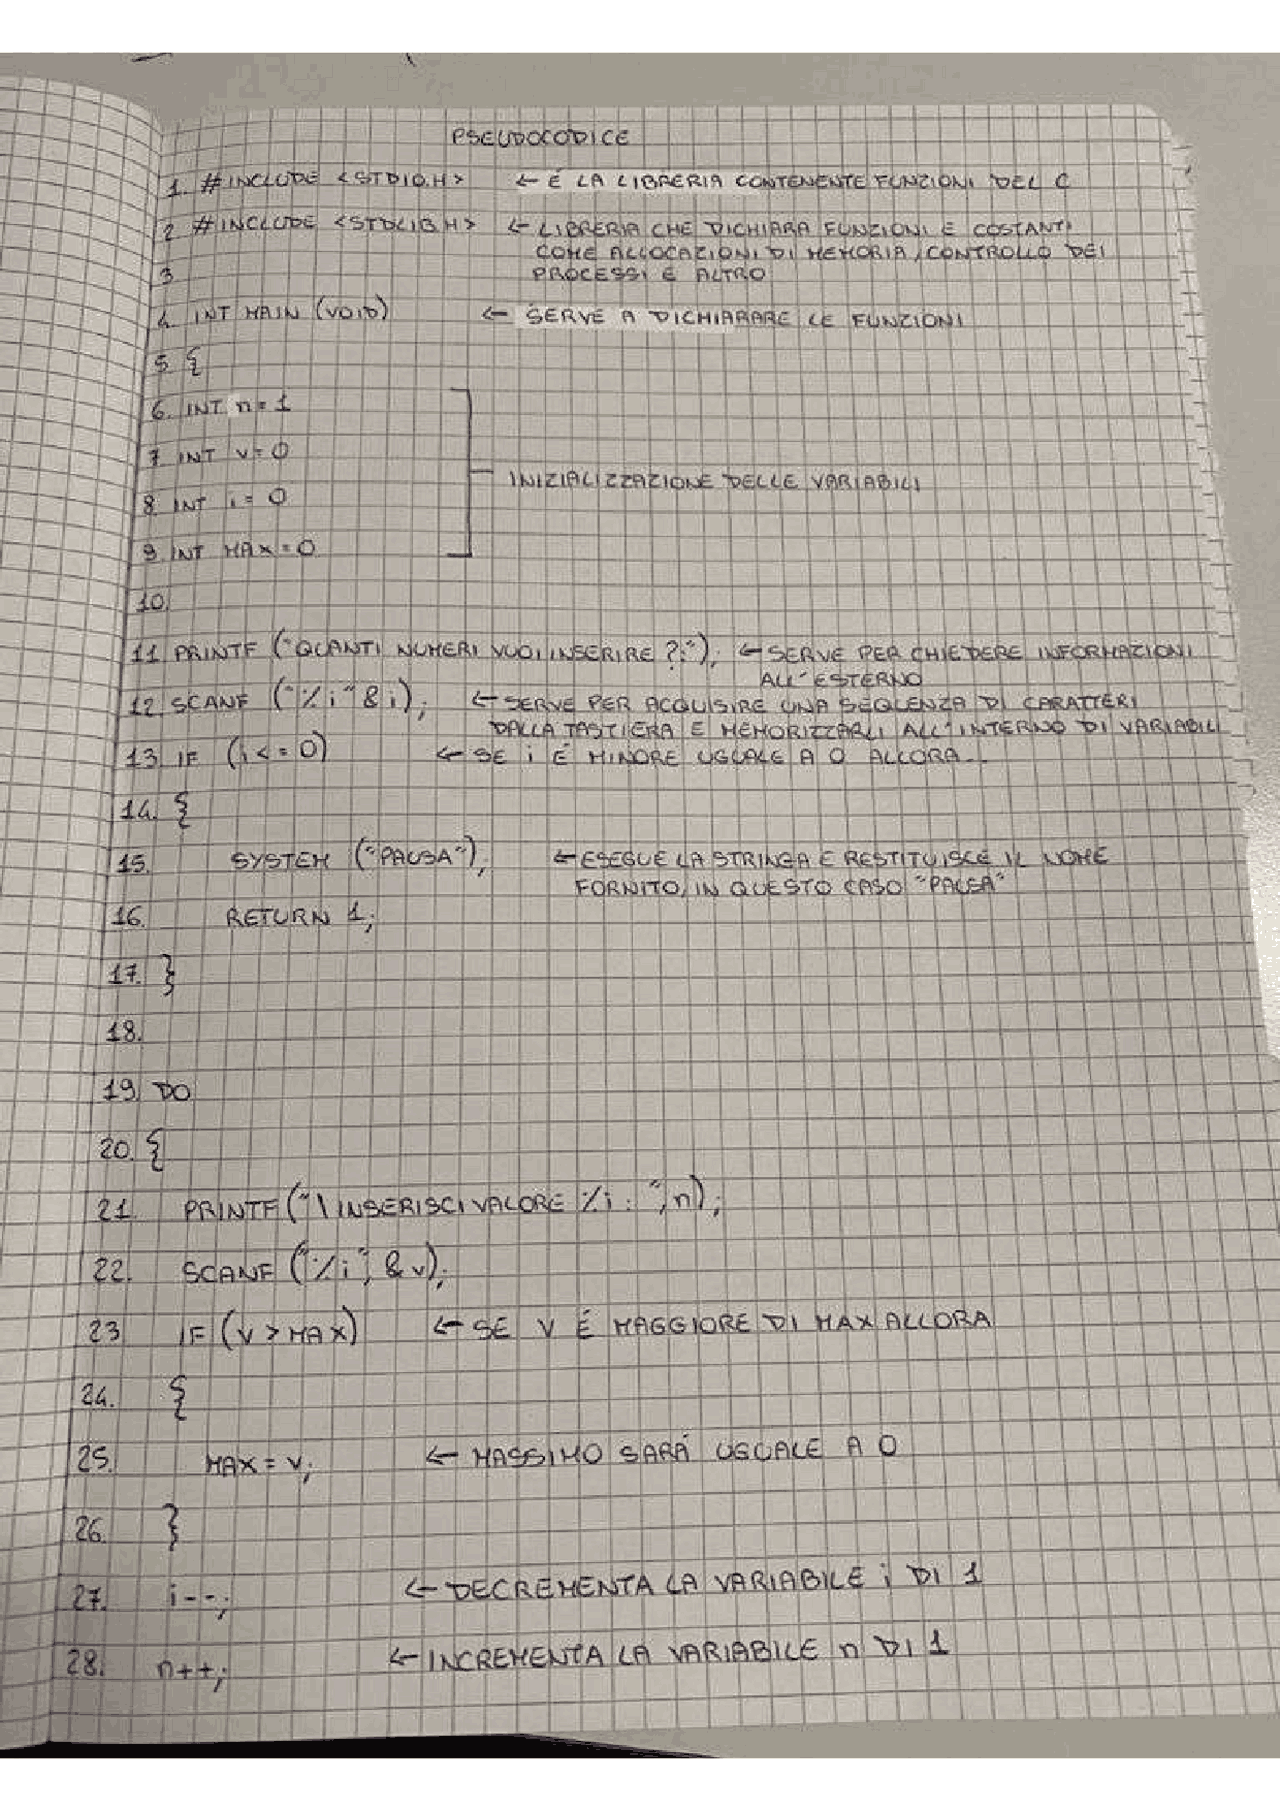 PSEUDOCODICE
1. #INCLUDE <STDIO.H> ← È LA LIBRERIA CONTENENTE FUNZIONI DEL C
2 #INCLUDE <STDLIB.H> ← LIBRERIA CHE DICHIARA FUNZIONI E COSTANTI
COME ALLOCAZIONI DI MEMORIA, CONTROLLO DEI
3 PROCESSI E ALTRO
4. INT MAIN (VOID) ← SERVE A DICHIARARE LE FUNZIONI
5. {
6. INT n = 1
7 INT v = 0
INIZIALIZZAZIONE DELLE VARIABILI
8. INT i = 0
9 INT MAX = 0
10.
11 PRINTF ("QUANTI NUMERI VUOI INSERIRE ?:"); ← SERVE PER CHIEDERE INFORMAZIONI
ALL'ESTERNO
12 SCANF ("%i" & i); ← SERVE PER ACQUISIRE UNA SEQUENZA DI CARATTERI
DALLA TASTIERA E MEMORIZZARLI ALL'INTERNO DI VARIABILI
13 IF (i <= 0) ← SE i È MINORE UGUALE A 0 ALLORA...
14. {
15. SYSTEM ("PAUSA"); ← ESEGUE LA STRINGA E RESTITUISCE IL NOME
FORNITO, IN QUESTO CASO "PAUSA"
16. RETURN 1;
17. }
18.
19. DO
20. {
21. PRINTF ("\ INSERISCI VALORE %i : ", n);
22. SCANF ("%i", & v);
23 IF (v > MAX) ← SE V È MAGGIORE DI MAX ALLORA
24. {
25. MAX = v; ← MASSIMO SARÀ UGUALE A 0
26. }
27. i--; ← DECREMENTA LA VARIABILE i DI 1
28. n++; ← INCREMENTA LA VARIABILE n DI 1